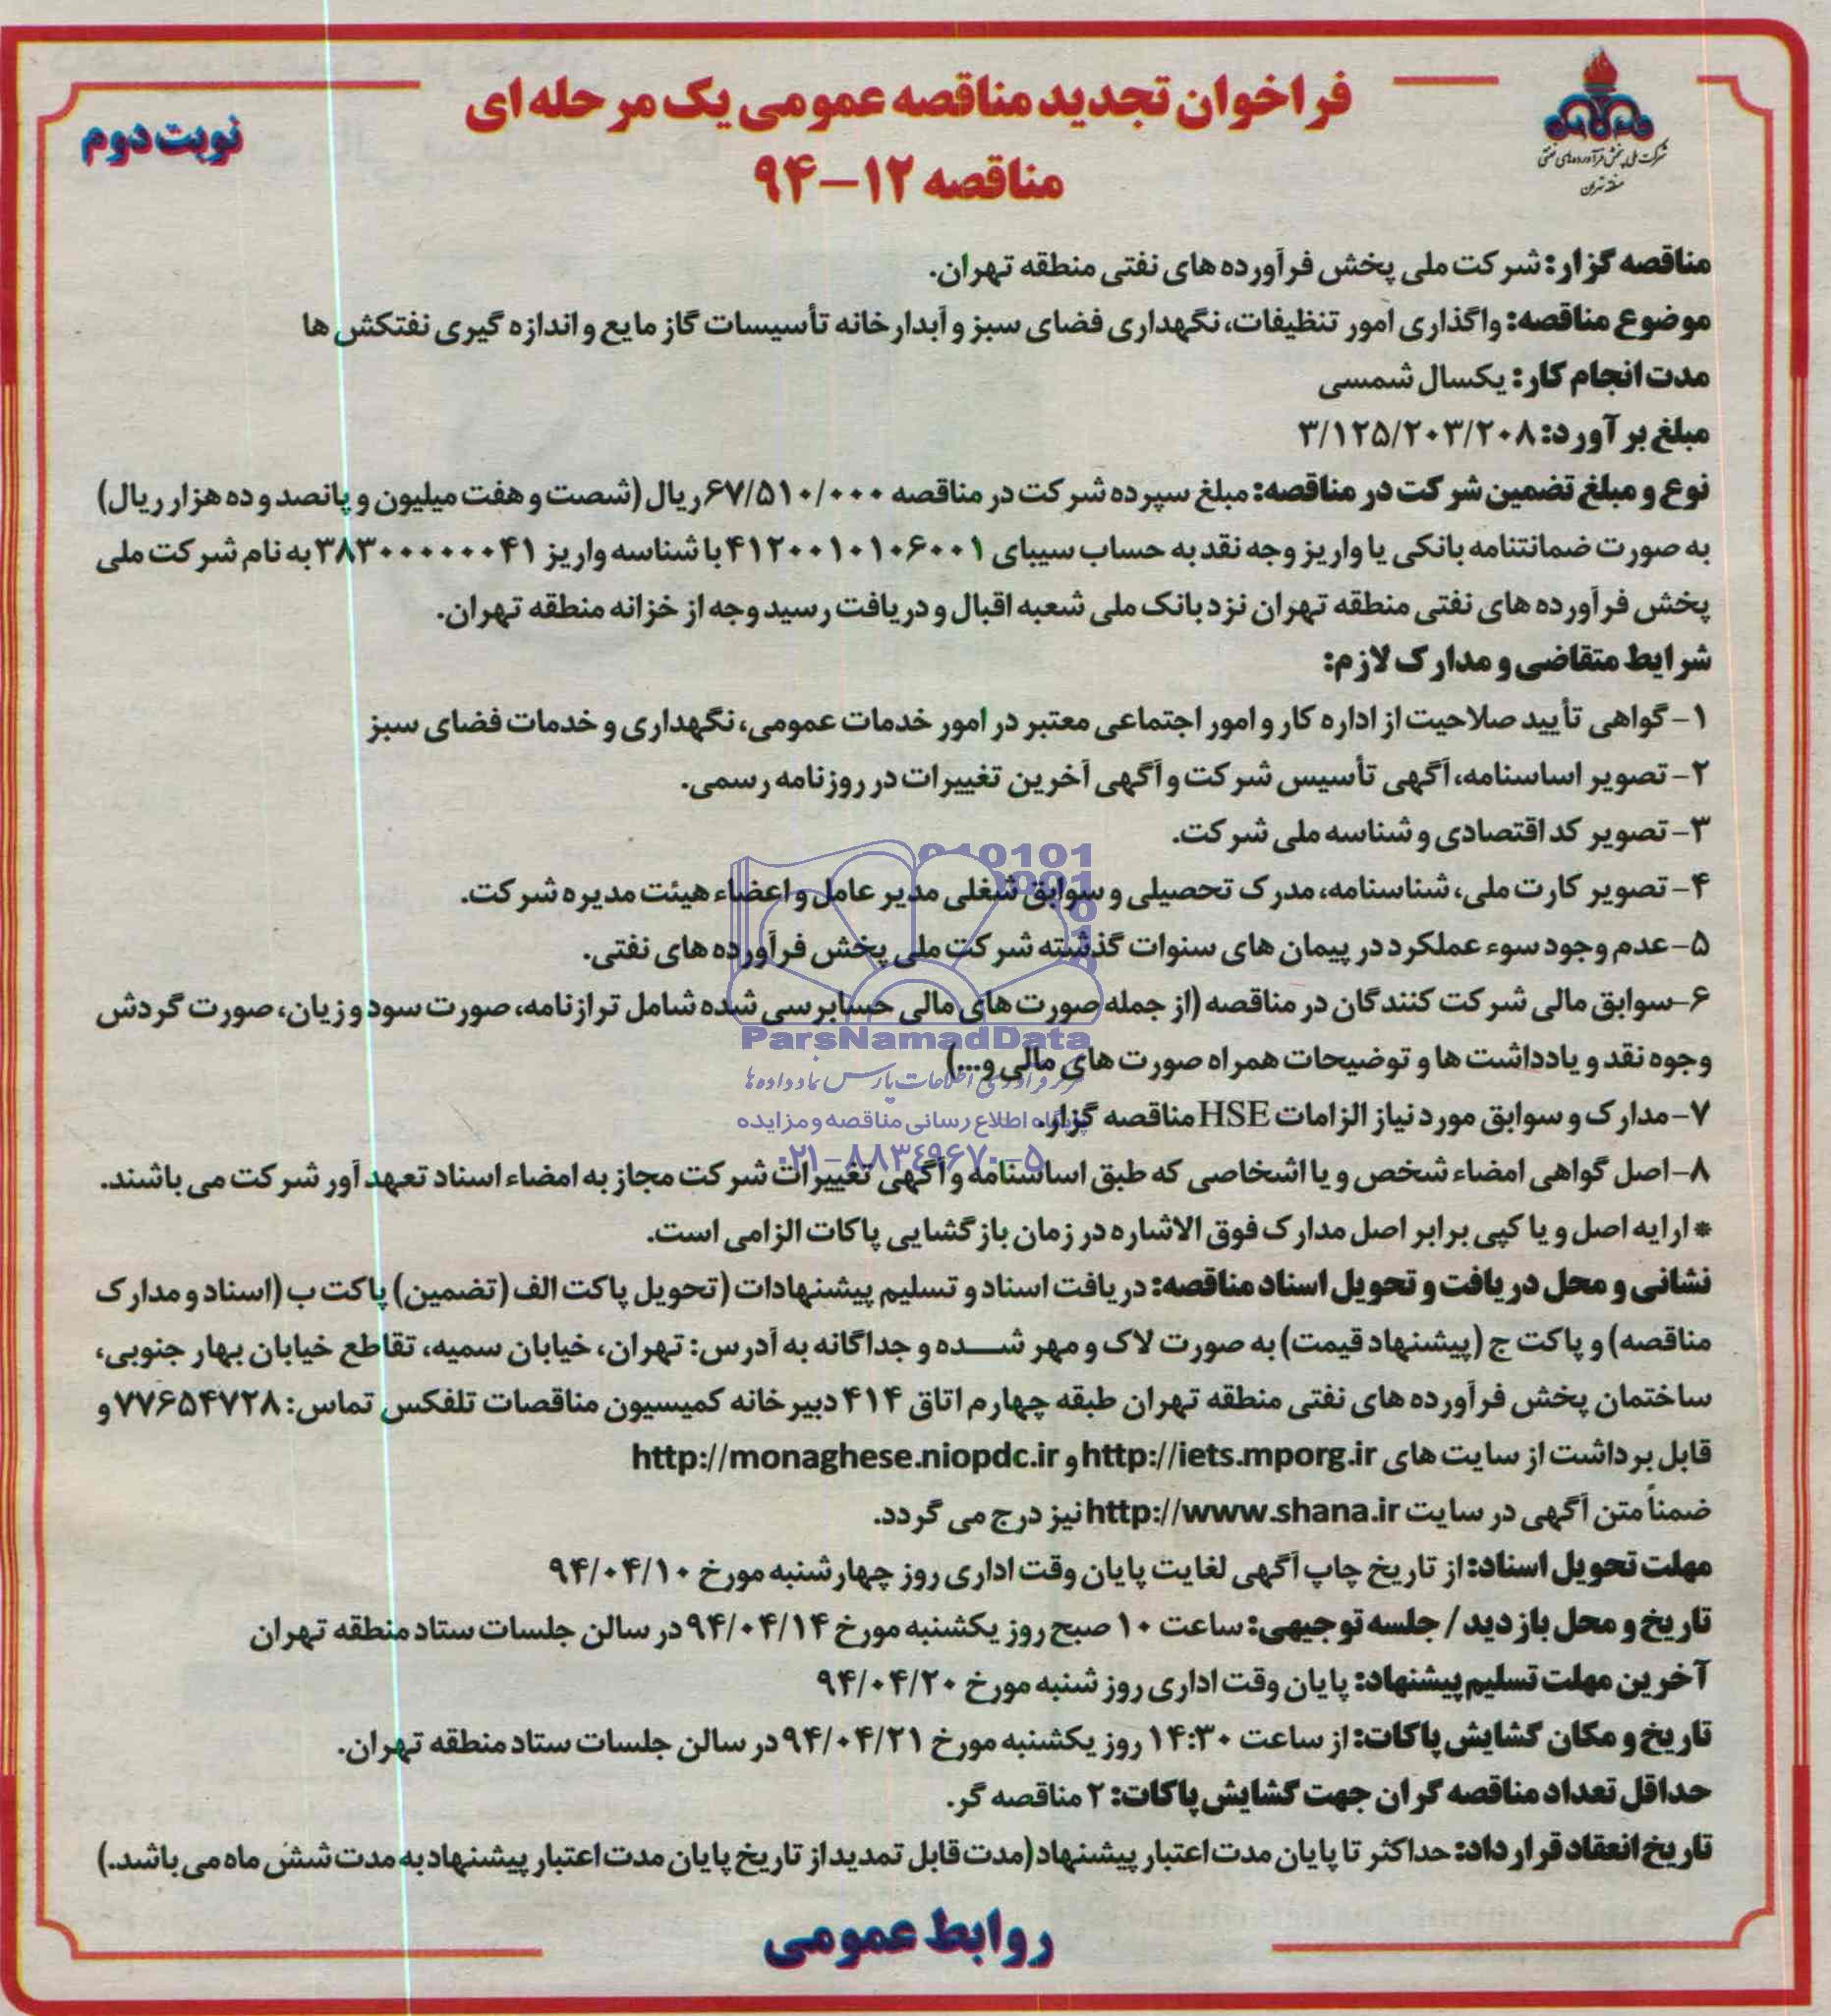 فراخوان تجدید مناقصه عمومی یک مرحله ای
مناقصه ۱۲-۹۴
نوبت دوم
شرکت ملی پخش فرآورده‌های نفتی
منطقه تهران
مناقصه گزار: شرکت ملی پخش فرآورده های نفتی منطقه تهران.
موضوع مناقصه: واگذاری امور تنظیفات، نگهداری فضای سبز و آبدارخانه تأسیسات گاز مایع و اندازه گیری نفتکش ها
مدت انجام کار: یکسال شمسی
مبلغ برآورد: ۳/۱۲۵/۲۰۳/۲۰۸
نوع و مبلغ تضمین شرکت در مناقصه: مبلغ سپرده شرکت در مناقصه ۶۷/۵۱۰/۰۰۰ ریال (شصت و هفت میلیون و پانصد و ده هزار ریال)
به صورت ضمانتنامه بانکی یا واریز وجه نقد به حساب سیبای ۴۱۲۰۰۱۰۱۰۶۰۰۱ با شناسه واریز ۳۸۳۰۰۰۰۰۰۴۱ به نام شرکت ملی
پخش فرآورده های نفتی منطقه تهران نزد بانک ملی شعبه اقبال و دریافت رسید وجه از خزانه منطقه تهران.
شرایط متقاضی و مدارک لازم:
۱- گواهی تأیید صلاحیت از اداره کار و امور اجتماعی معتبر در امور خدمات عمومی، نگهداری و خدمات فضای سبز
۲- تصویر اساسنامه، آگهی تأسیس شرکت و آگهی آخرین تغییرات در روزنامه رسمی.
۳- تصویر کد اقتصادی و شناسه ملی شرکت.
۴- تصویر کارت ملی، شناسنامه، مدرک تحصیلی و سوابق شغلی مدیر عامل و اعضاء هیئت مدیره شرکت.
۵- عدم وجود سوء عملکرد در پیمان های سنوات گذشته شرکت ملی پخش فرآورده های نفتی.
۶- سوابق مالی شرکت کنندگان در مناقصه (از جمله صورت های مالی حسابرسی شده شامل ترازنامه، صورت سود و زیان، صورت گردش
وجوه نقد و یادداشت ها و توضیحات همراه صورت های مالی و...)
۷- مدارک و سوابق مورد نیاز الزامات HSE مناقصه گزار.
۸- اصل گواهی امضاء شخص و یا اشخاصی که طبق اساسنامه و آگهی تغییرات شرکت مجاز به امضاء اسناد تعهد آور شرکت می باشند.
* ارایه اصل و یا کپی برابر اصل مدارک فوق الاشاره در زمان بازگشایی پاکات الزامی است.
نشانی و محل دریافت و تحویل اسناد مناقصه: دریافت اسناد و تسلیم پیشنهادات (تحویل پاکت الف (تضمین) پاکت ب (اسناد و مدارک
مناقصه) و پاکت ج (پیشنهاد قیمت) به صورت لاک و مهر شده و جداگانه به آدرس: تهران، خیابان سمیه، تقاطع خیابان بهار جنوبی،
ساختمان پخش فرآورده های نفتی منطقه تهران طبقه چهارم اتاق ۴۱۴ دبیرخانه کمیسیون مناقصات تلفکس تماس: ۷۷۶۵۴۷۲۸ و
قابل برداشت از سایت های http://iets.mporg.ir و http://monaghese.niopdc.ir
ضمناً متن آگهی در سایت http://www.shana.ir نیز درج می گردد.
مهلت تحویل اسناد: از تاریخ چاپ آگهی لغایت پایان وقت اداری روز چهارشنبه مورخ ۹۴/۰۴/۱۰
تاریخ و محل بازدید / جلسه توجیهی: ساعت ۱۰ صبح روز یکشنبه مورخ ۹۴/۰۴/۱۴ در سالن جلسات ستاد منطقه تهران
آخرین مهلت تسلیم پیشنهاد: پایان وقت اداری روز شنبه مورخ ۹۴/۰۴/۲۰
تاریخ و مکان گشایش پاکات: از ساعت ۱۴:۳۰ روز یکشنبه مورخ ۹۴/۰۴/۲۱ در سالن جلسات ستاد منطقه تهران.
حداقل تعداد مناقصه گران جهت گشایش پاکات: ۲ مناقصه گر.
تاریخ انعقاد قرارداد: حداکثر تا پایان مدت اعتبار پیشنهاد (مدت قابل تمدید از تاریخ پایان مدت اعتبار پیشنهاد به مدت شش ماه می باشد.)
روابط عمومی
ParsNamadData
مرکز فرآوری اطلاعات پارس نماد داده‌ها
پایگاه اطلاع رسانی مناقصه و مزایده
۰۲۱-۸۸۳۴۹۶۷۰-۵